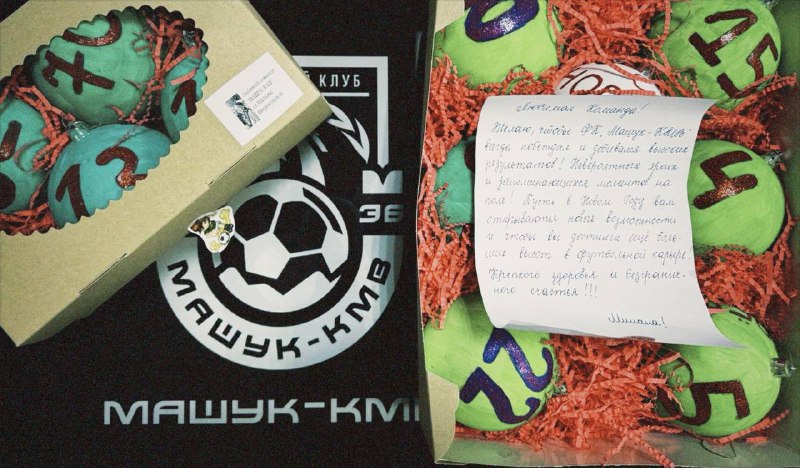 70
13
Любимой команде
МАШУК-КМВ
КЛУБ
МАШУК-КМВ
МАШУК-КМВ
15
4
22
5
Любимая Команда!
Желаю, чтобы ФК „Машук-КМВ"
всегда побеждал и добивался высоких
результатов! Невероятных ярких
и запоминающихся моментов на
поле! Пусть в Новом Году вам
открываются новые возможности
и чтобы вы достигли ещё боль-
ших высот в футбольной карьере!
Крепкого здоровья и безгранич-
ного счастья!!!